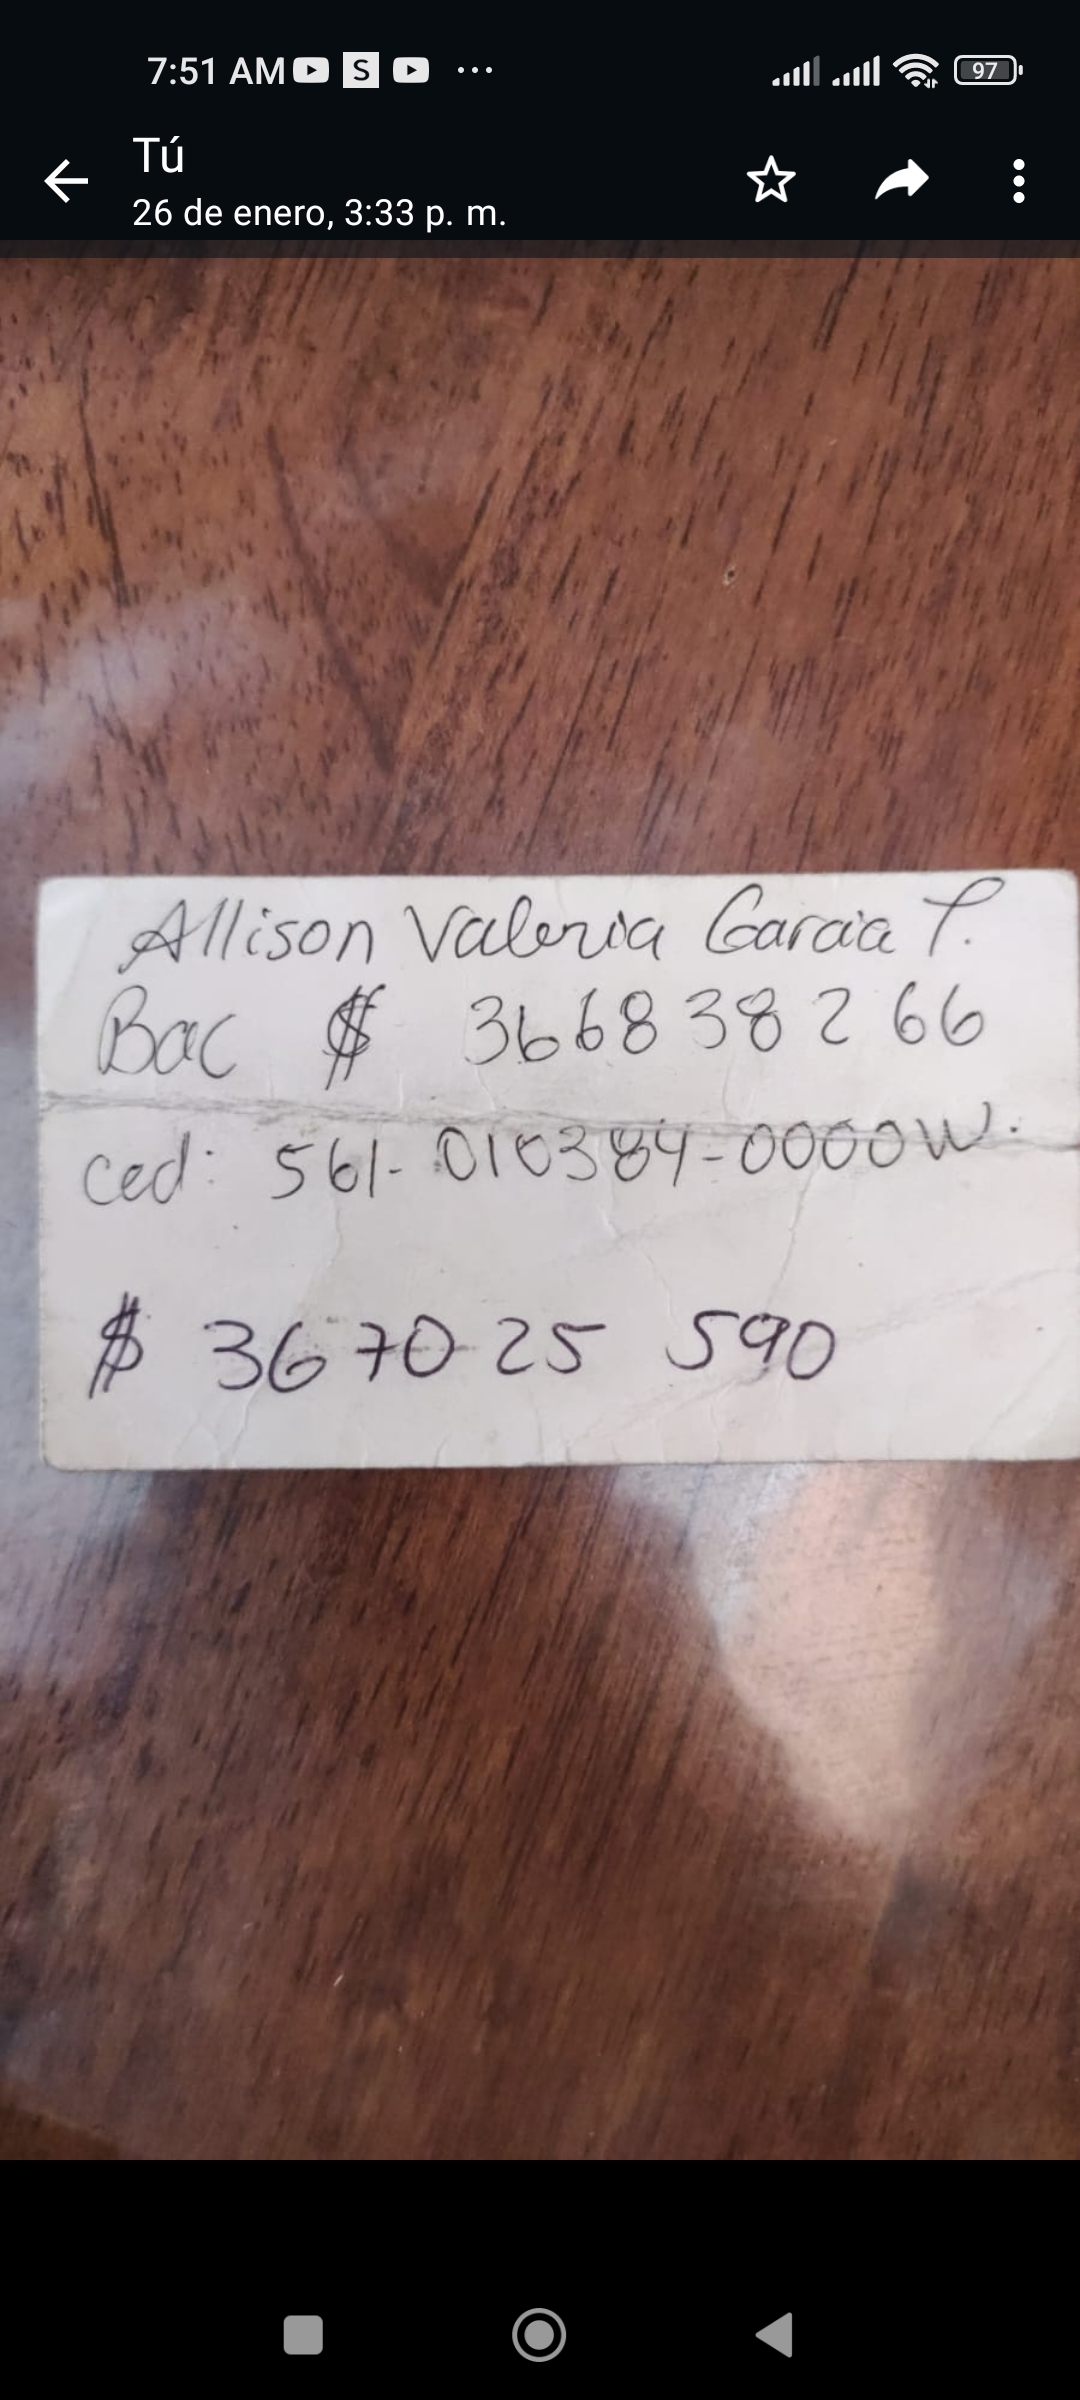 7:51 AM
97
Tú
26 de enero, 3:33 p. m.
Allison Valeria Garcia T.
Bac $ 366838266
ced: 561-010384-0000W.
$ 367025 590